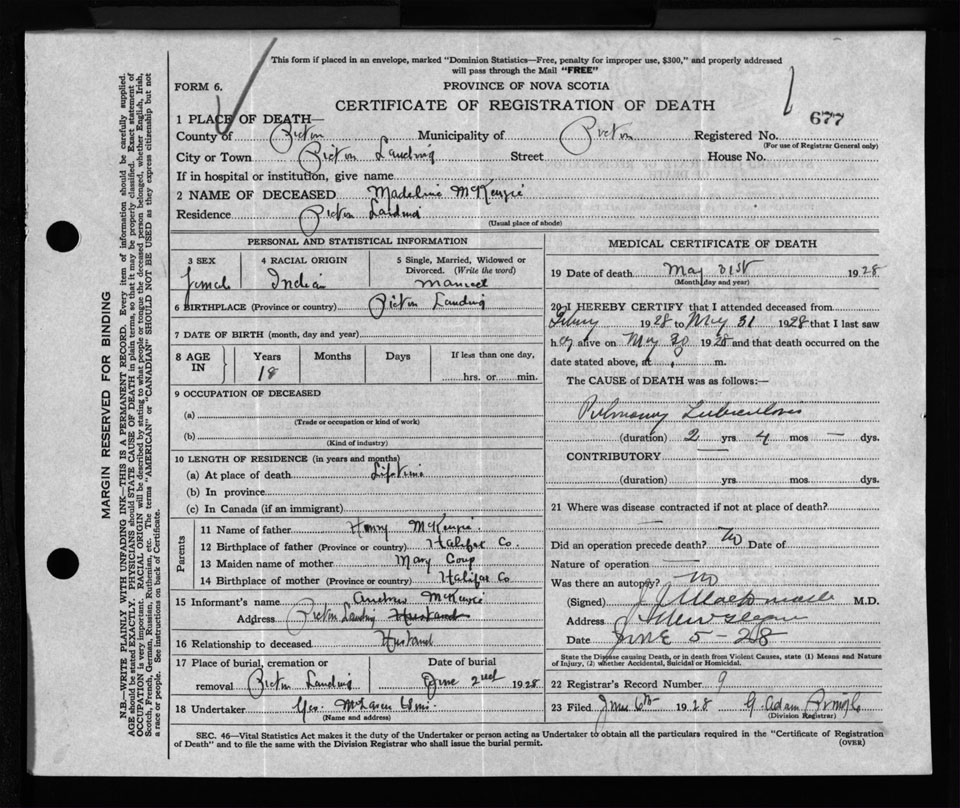 This form if placed in an envelope, marked "Dominion Statistics—Free, penalty for improper use, $300," and properly addressed
will pass through the Mail "FREE"
FORM 6.
PROVINCE OF NOVA SCOTIA
CERTIFICATE OF REGISTRATION OF DEATH
677
1 PLACE OF DEATH—
County of Pictou Municipality of Pictou Registered No.
(For use of Registrar General only)
City or Town Pictou Landing Street House No.
If in hospital or institution, give name
2 NAME OF DECEASED Madeline McKenzie
Residence Pictou Landing
(Usual place of abode)
PERSONAL AND STATISTICAL INFORMATION
3 SEX 4 RACIAL ORIGIN 5 Single, Married, Widowed or
Divorced. (Write the word)
Female Indian Married
6 BIRTHPLACE (Province or country) Pictou Landing
7 DATE OF BIRTH (month, day and year)
8 AGE IN Years Months Days If less than one day,
18 hrs. or min.
9 OCCUPATION OF DECEASED
(a)
(Trade or occupation or kind of work)
(b)
(Kind of industry)
10 LENGTH OF RESIDENCE (in years and months)
(a) At place of death Lifetime
(b) In province
(c) In Canada (if an immigrant)
Parents
11 Name of father Henry McKenzie
12 Birthplace of father (Province or country) Halifax Co.
13 Maiden name of mother Mary
14 Birthplace of mother (Province or country) Halifax Co
15 Informant's name Andrew McKenzie
Address Pictou Landing Husband
16 Relationship to deceased Husband
17 Place of burial, cremation or Date of burial
removal Pictou Landing June 2nd 1928
18 Undertaker Geo. McLaren
(Name and address)
MEDICAL CERTIFICATE OF DEATH
19 Date of death May 31st 1928
(Month, day and year)
20 I HEREBY CERTIFY that I attended deceased from
1928 to May 31 1928 that I last saw
her alive on May 30 1928 and that death occurred on the
date stated above, at m.
The CAUSE OF DEATH was as follows:—
Pulmonary Tuberculosis
(duration) 2 yrs. 4 mos — dys.
CONTRIBUTORY
(duration) yrs. mos. dys.
21 Where was disease contracted if not at place of death?
Did an operation precede death? No Date of
Nature of operation —
Was there an autopsy? No
(Signed) M.D.
Address
Date JUNE 5-28
State the Disease causing Death, or in death from Violent Causes, state (1) Means and Nature
of Injury, (2) whether Accidental, Suicidal or Homicidal.
22 Registrar's Record Number 9
23 Filed June 6th 1928 G. Adam
(Division Registrar)
SEC. 46—Vital Statistics Act makes it the duty of the Undertaker or person acting as Undertaker to obtain all the particulars required in the "Certificate of Registration
of Death" and to file the same with the Division Registrar who shall issue the burial permit.
(OVER)
MARGIN RESERVED FOR BINDING
N.B.—WRITE PLAINLY WITH UNFADING INK—THIS IS A PERMANENT RECORD. Every item of information should be carefully supplied.
AGE should be stated EXACTLY. PHYSICIANS should STATE CAUSE OF DEATH in plain terms, so that it may be properly classified. Exact statement of
OCCUPATION is very important. RACIAL ORIGIN will be described by stating to what people or tongue the deceased person belonged, whether English, Irish,
Scotch, French, German, Russian, Ruthenian, etc. The terms "AMERICAN" or "CANADIAN" SHOULD NOT BE USED as they express citizenship but not
a race or people. See instructions on back of Certificate.